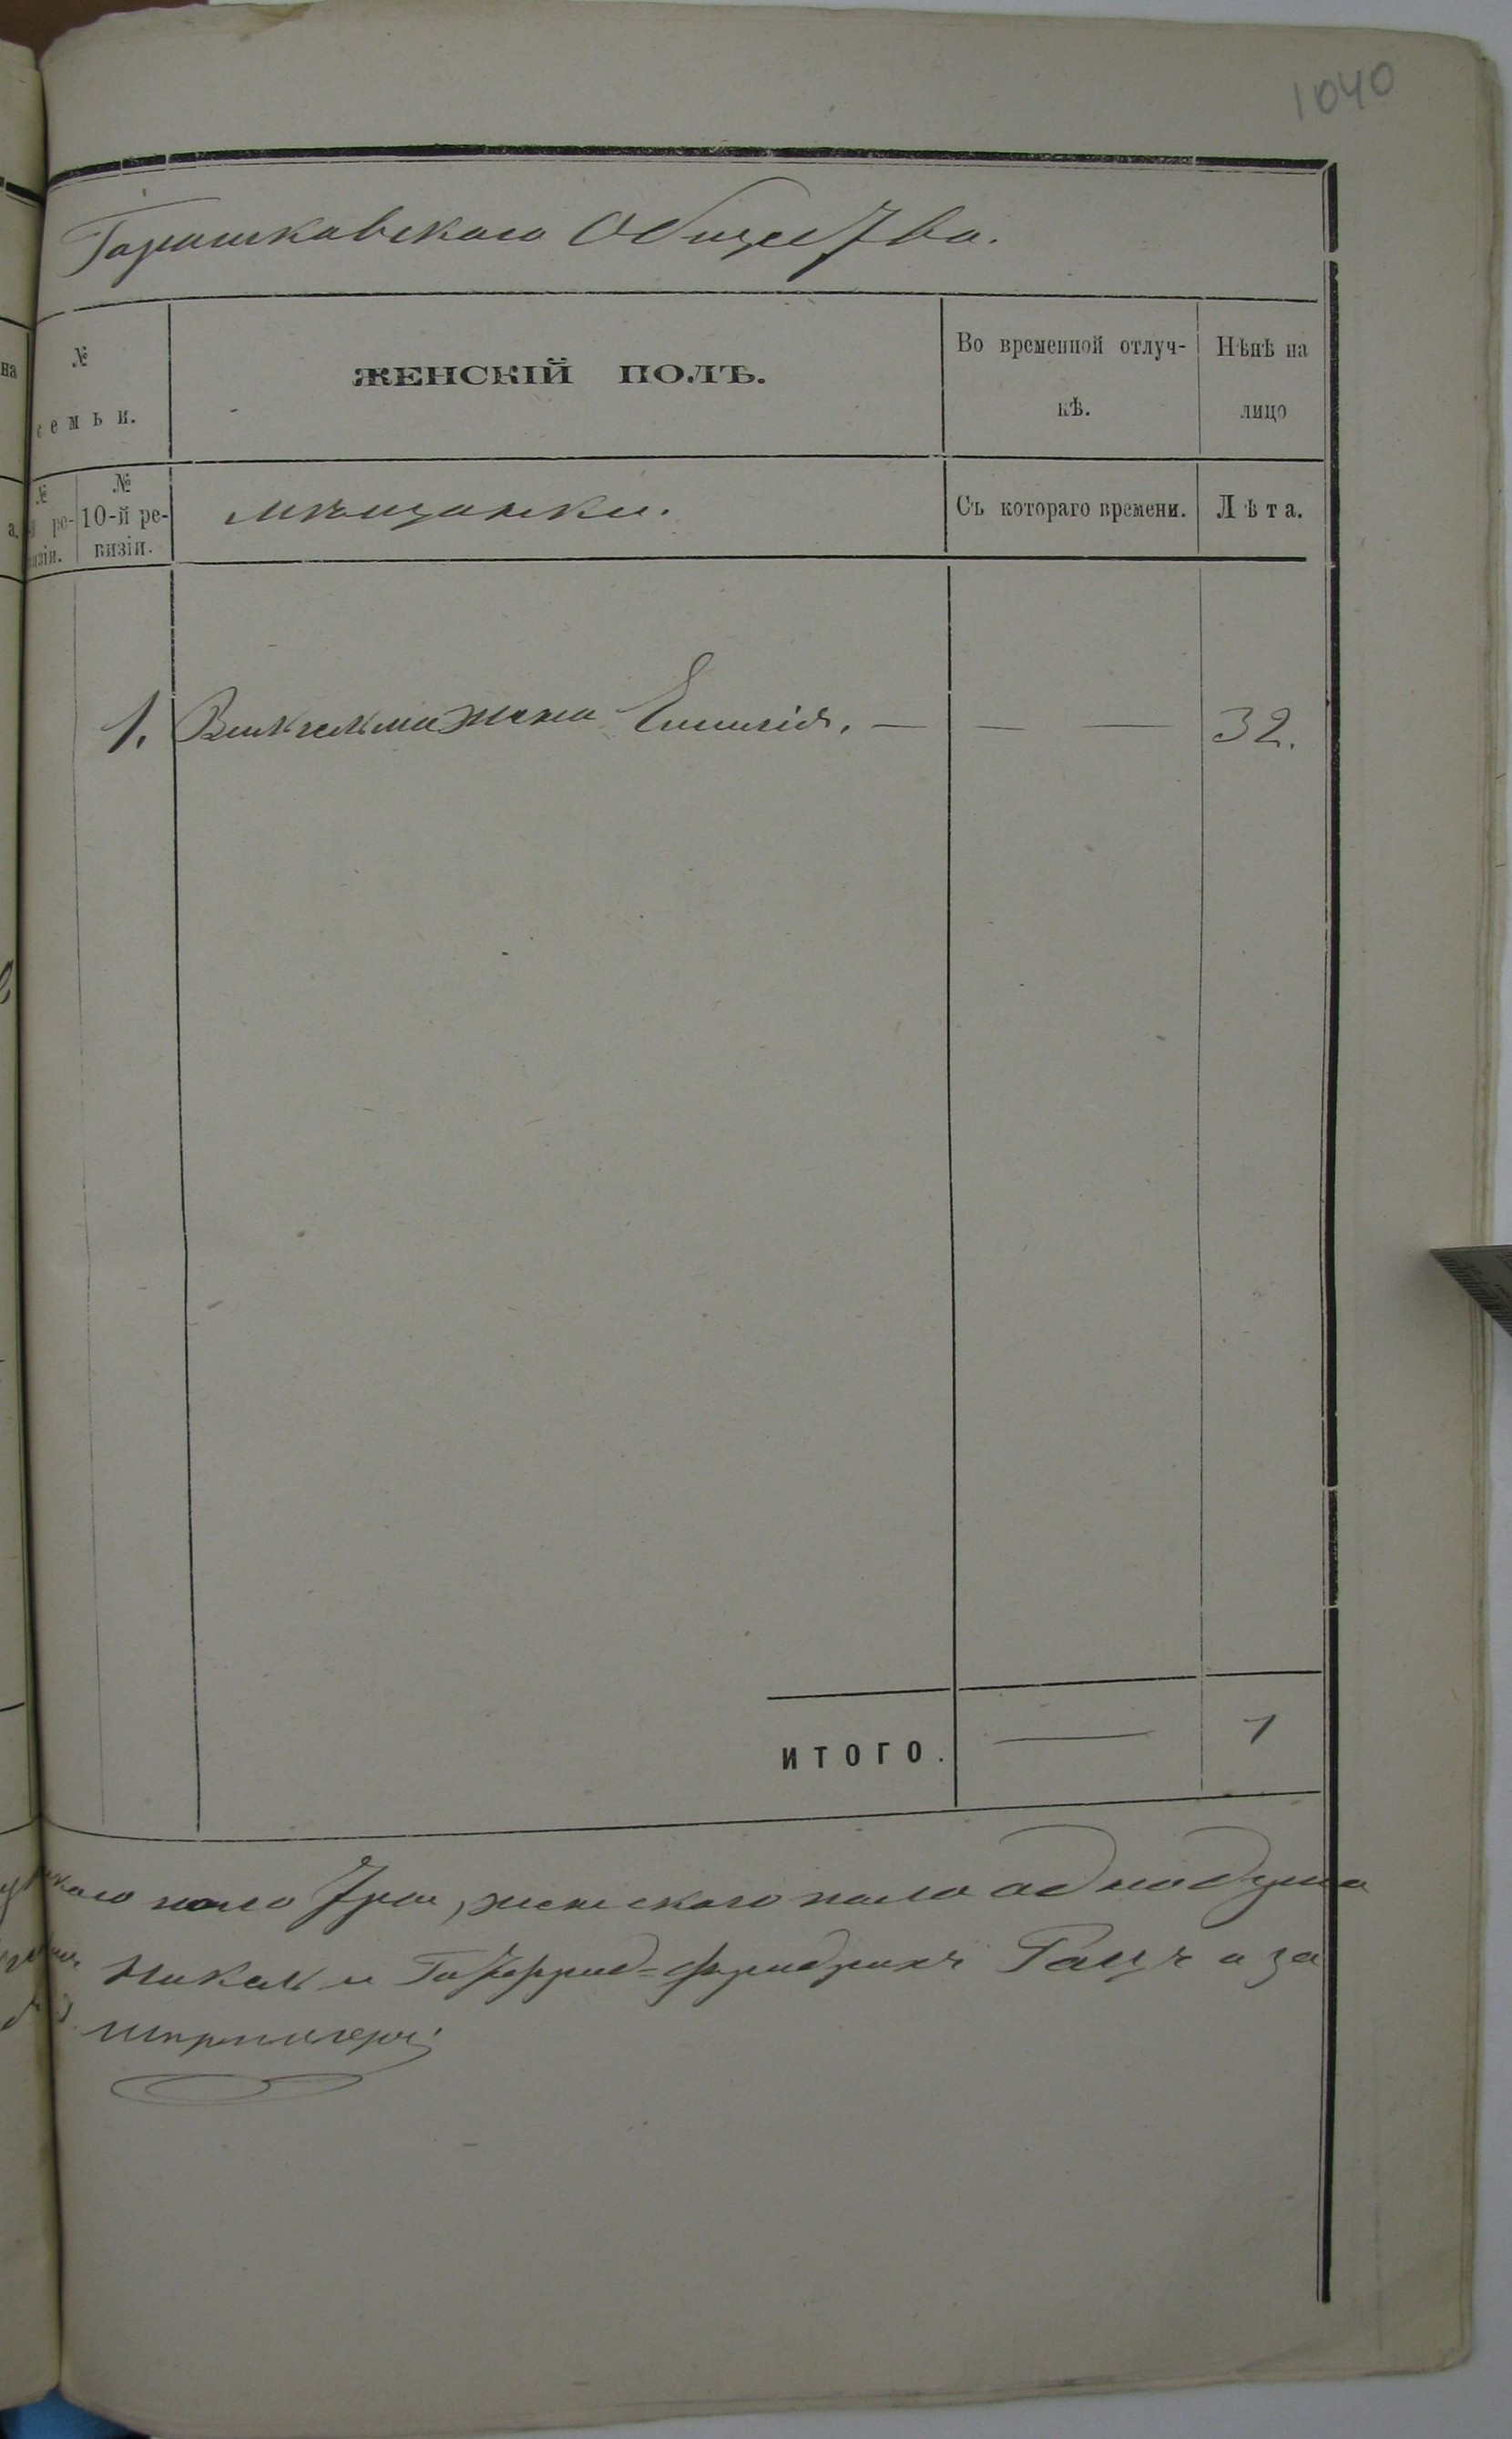 1040
Горошковскаго Общества.
№
семьи.
ЖЕНСКІЙ ПОЛЪ.
Во временной отлуч-
кѣ.
Нѣнѣ на
лицо
№
ре-
визіи.
№
10-й ре-
визіи.
мѣщанки.
Съ котораго времени.
Лѣта.
1. Вильгельма жена Емилія. — — — 32.
ИТОГО. — 1
пола три, женскаго пола одна душа
Николь и Готфрид-Фридрихъ Гацъ а за